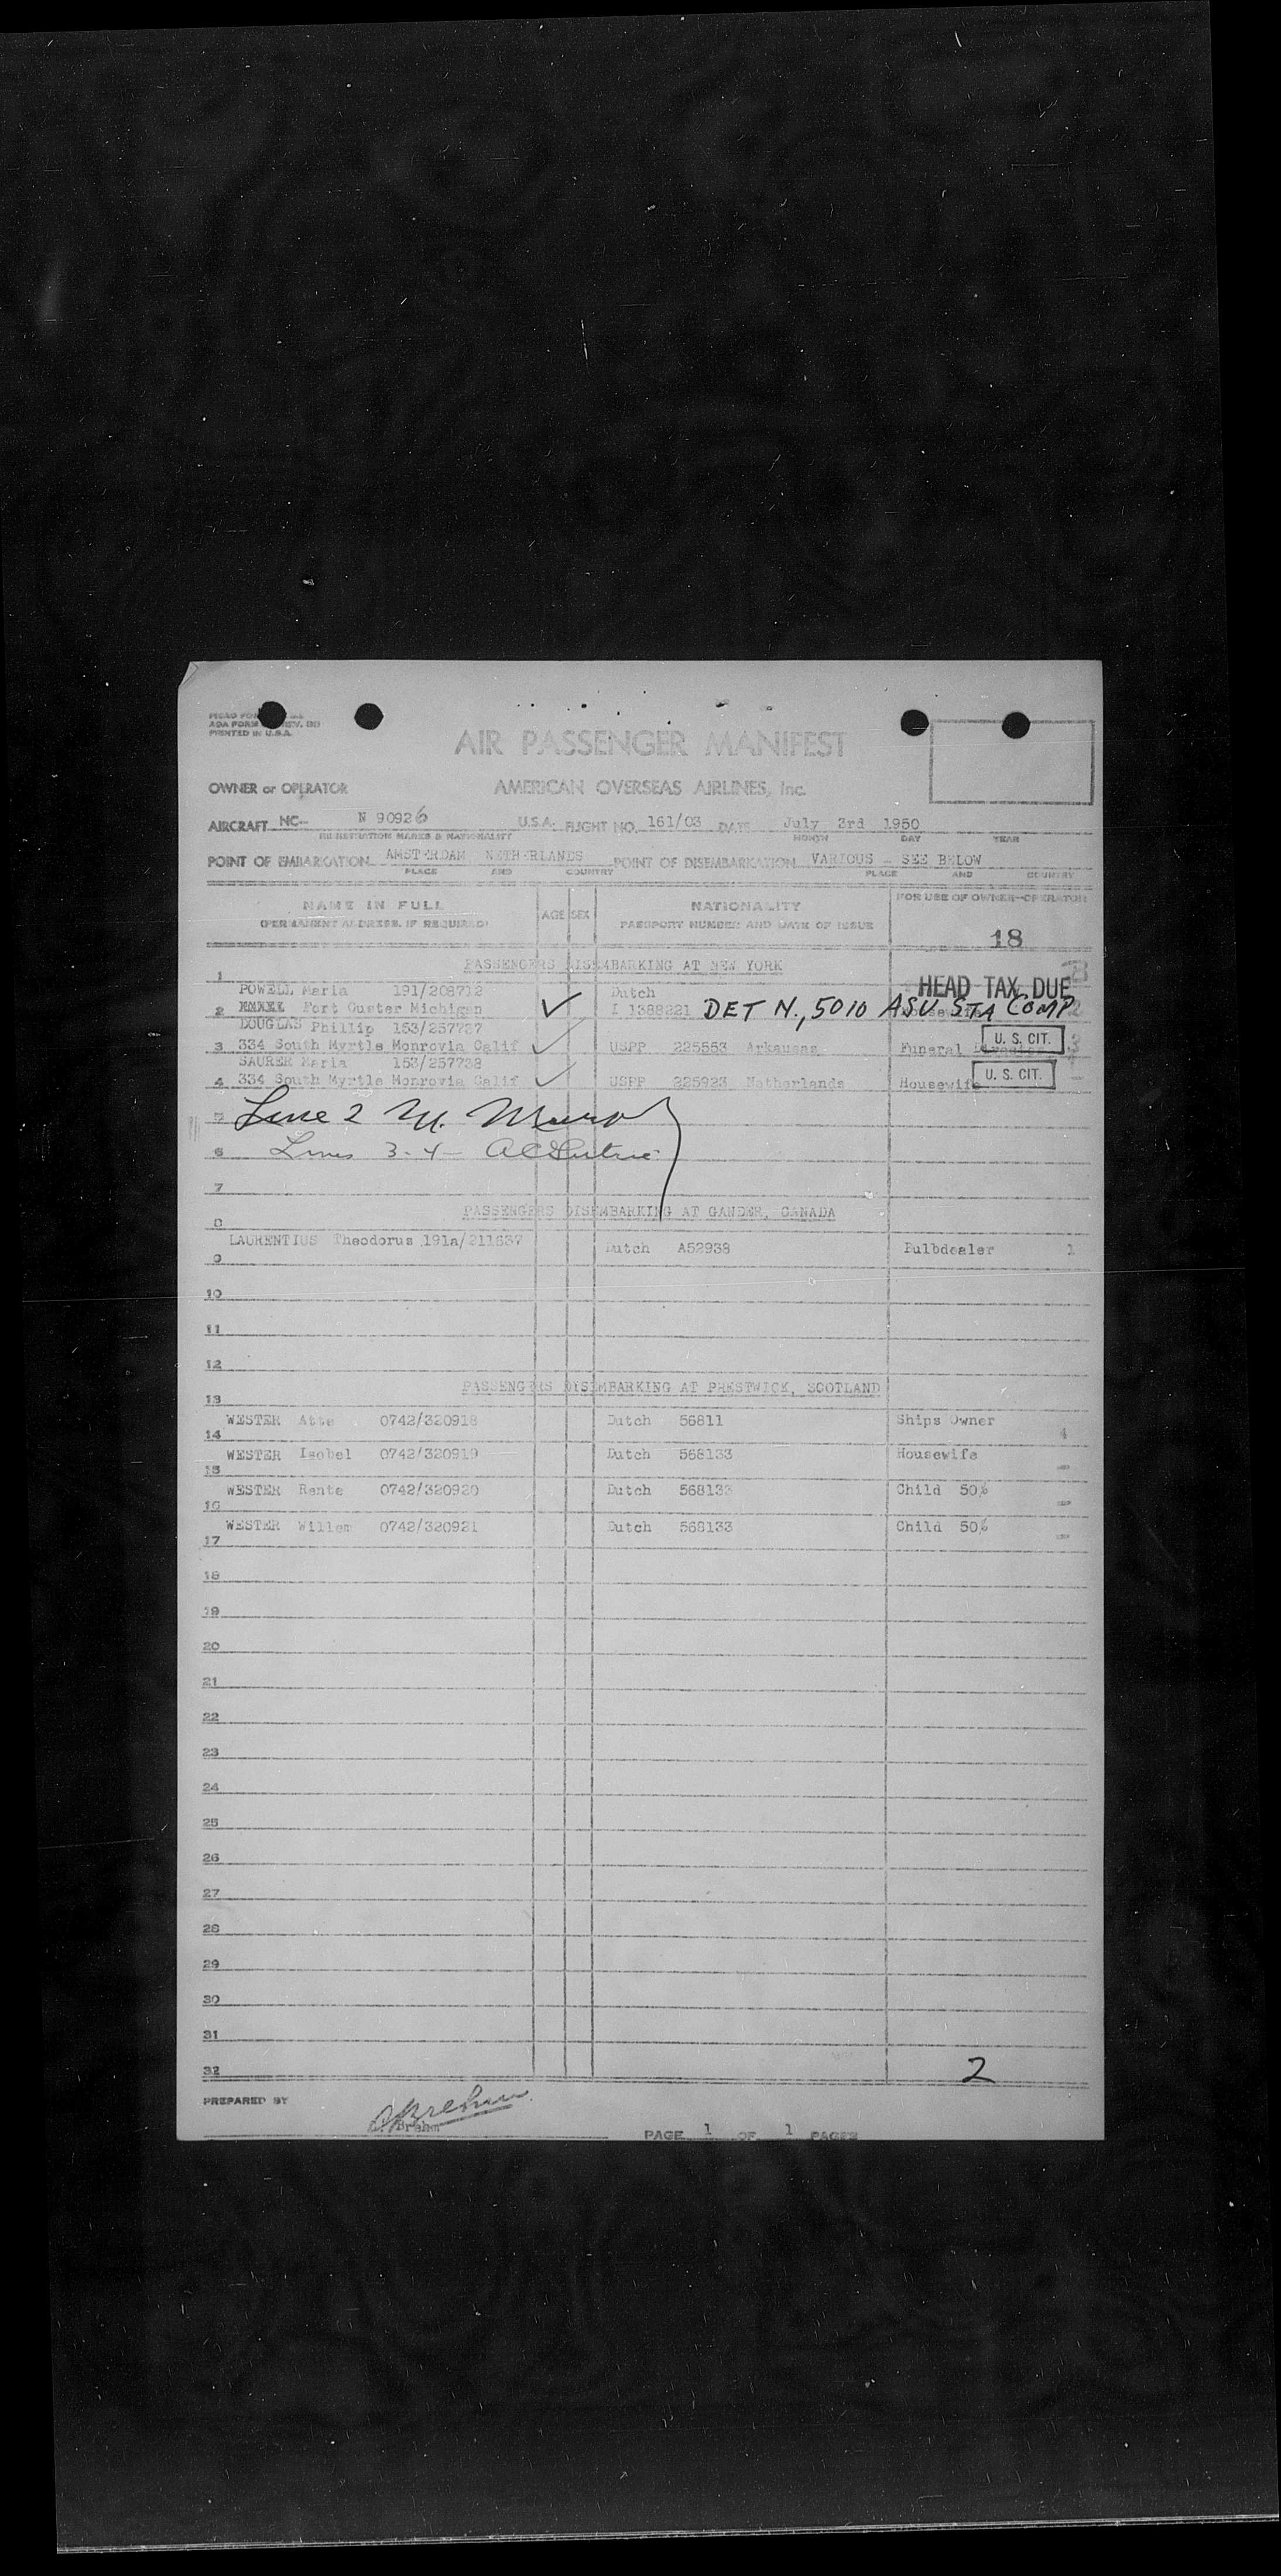 PRINTED IN U.S.A.
AIR PASSENGER MANIFEST
OWNER or OPERATOR AMERICAN OVERSEAS AIRLINES, Inc.
AIRCRAFT NC- N 90926 U.S.A. FLIGHT NO. 161/03 DATE July 3rd 1950
REGISTRATION MARKS & NATIONALITY MONTH DAY YEAR
POINT OF EMBARKATION AMSTERDAM NETHERLANDS POINT OF DISEMBARKATION VARIOUS - SEE BELOW
PLACE AND COUNTRY PLACE AND COUNTRY
NAME IN FULL AGE SEX NATIONALITY FOR USE OF OWNER-OPERATOR
(PERMANENT ADDRESS, IF REQUIRED) PASSPORT NUMBER AND DATE OF ISSUE
18
1 PASSENGERS DISEMBARKING AT NEW YORK
HEAD TAX DUE
POWELL Maria 191/208712 Dutch
2 Fort Custer Michigan ✓ I 1388221 DET N., 5010 ASU STA COMP
DOUGLAS Phillip 153/257737
3 334 South Myrtle Monrovia Calif ✓ USPP 225553 Arkansas Funeral U. S. CIT.
SAURER Maria 153/257738
4 334 South Myrtle Monrovia Calif ✓ USPP 225923 Netherlands Housewife U. S. CIT.
5 Line 2 M.
6 Lines 3-4-
7
8 PASSENGERS DISEMBARKING AT GANDER, CANADA
LAURENTIUS Theodorus 191a/211637 Dutch A52938 Bulbdealer 1
9
10
11
12
13 PASSENGERS DISEMBARKING AT PRESTWICK, SCOTLAND
WESTER Atte 0742/320918 Dutch 56811 Ships Owner
14 4
WESTER Isobel 0742/320919 Dutch 568133 Housewife
15
WESTER Rente 0742/320920 Dutch 568133 Child 50%
16
WESTER Willem 0742/320921 Dutch 568133 Child 50%
17
18
19
20
21
22
23
24
25
26
27
28
29
30
31
32 2
PREPARED BY
Brehm
PAGE 1 OF 1 PAGES